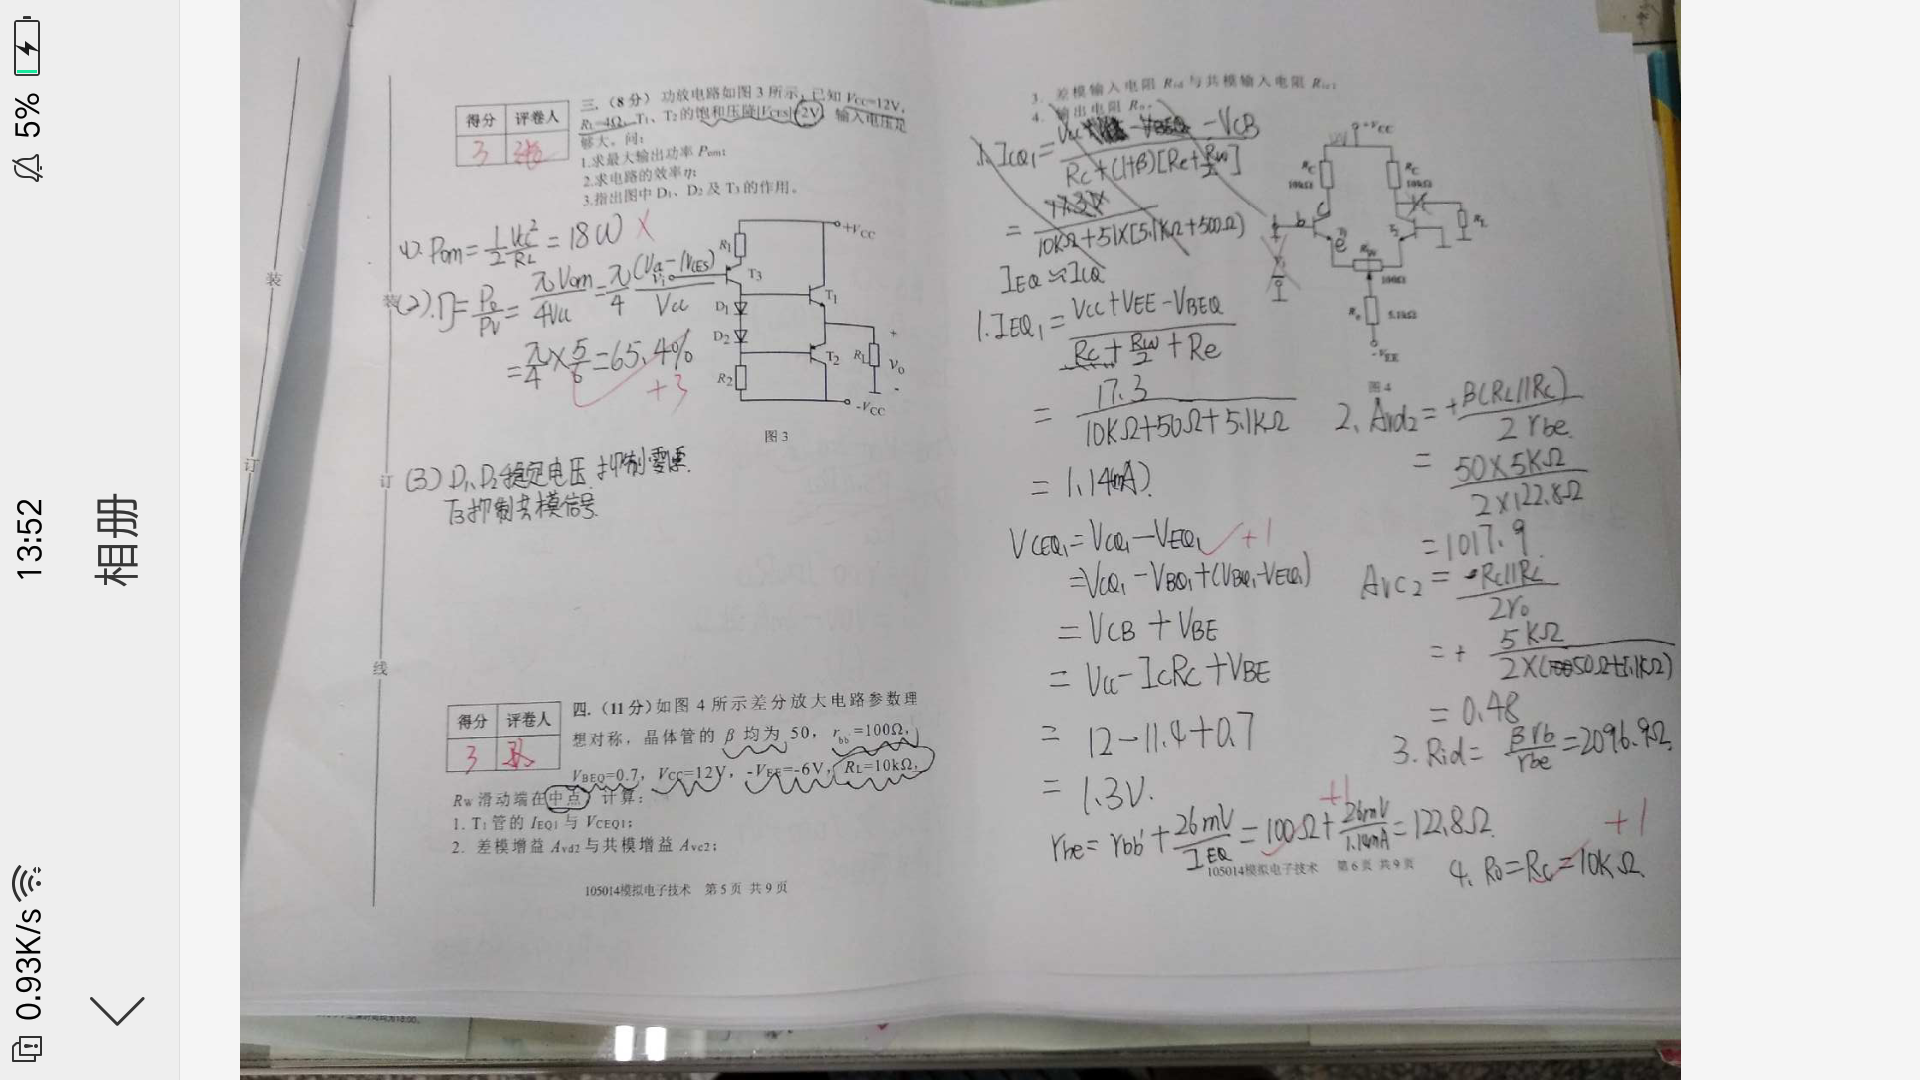 5%
13:52
0.93K/s
相册
装
订
装
订
线
得分 评卷人
3
三.（8分）功放电路如图3所示，已知 VCC=12V，
RL=4Ω，T1、T2的饱和压降|VCES|=2V，输入电压足
够大。问：
1.求最大输出功率 Pom；
2.求电路的效率η；
3.指出图中 D1、D2 及 T3 的作用。
(1). Pom = 1/2 Vcc²/RL = 18W ×
(2). η = Po/Pv = πVom/4Vcc = π/4 (Vcc-|VCES|)/Vcc
= π/4 × 5/6 = 65.4%
+3
R1
+VCC
T3
vi
D1
T1
D2
T2
RL
+
vo
-
R2
-VCC
图3
(3) D1、D2稳定电压,抑制零漂.
T3抑制共模信号.
得分 评卷人
3
四.（11分）如图 4 所示差分放大电路参数理
想对称，晶体管的 β 均为 50， rbb'=100Ω，
VBEQ=0.7，VCC=12V，-VEE=-6V，RL=10kΩ，
RW 滑动端在中点，计算：
1. T1 管的 IEQ1 与 VCEQ1；
2. 差模增益 Avd2 与共模增益 Avc2；
105014模拟电子技术 第5页 共9页
3. 差模输入电阻 Rid 与共模输入电阻 Ric；
4. 输出电阻 Ro。
1. ICQ1 = -VCB / Rc+(1+β)[Re+RW/2]
= 17.3 / 10KΩ+51×[5.1KΩ+50Ω]
IEQ ≈ ICQ
1. IEQ1 = Vcc+VEE-VBEQ / Rc+RW/2+Re
= 17.3 / 10KΩ+50Ω+5.1KΩ
= 1.14(mA).
VCEQ1 = VCQ1 - VEQ1 +1
= VCQ1 - VBQ1 + (VBQ1 - VEQ1)
= VCB + VBE
= Vcc - IcRc + VBE
= 12 - 11.4 + 0.7
= 1.3V.
rbe = rbb' + 26mV/IEQ = 100Ω + 26mV/1.14mA = 122.8Ω.
+1
+VCC
RC
10kΩ
RC
10kΩ
RL
b
c
e
T2
RW
100Ω
Re
5.1kΩ
-VEE
图4
2. Avd2 = + β(Rc//RL) / 2rbe
= 50×5KΩ / 2×122.8Ω
= 1017.9
Avc2 = -Rc//RL / 2ro
= + 5KΩ / 2×(50Ω+5.1KΩ)
= 0.48
3. Rid = βrb/rbe = 2096.9Ω
+1
4. Ro = Rc = 10KΩ.
105014模拟电子技术 第6页 共9页